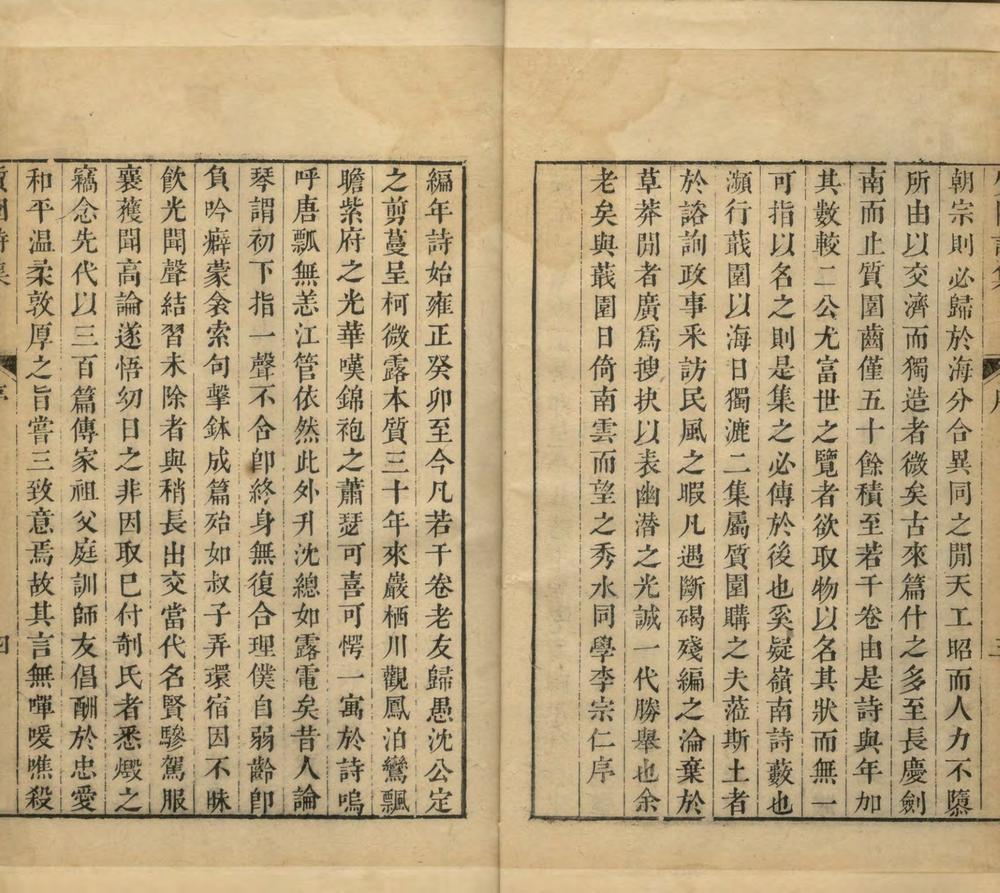 朝宗則必歸於海分合異同之閒天工昭而人力不隳
所由以交濟而獨造者微矣古來篇什之多至長慶劍
南而止質園齒僅五十餘積至若干卷由是詩與年加
其數較二公尤富世之覽者欲取物以名其狀而無一
可指以名之則是集之必傳於後也奚疑嶺南詩藪也
瀕行蕺園以海日獨漉二集屬質園購之夫蒞斯土者
於諮詢政事釆訪民風之暇凡遇斷碣殘編之淪棄於
草莽閒者廣爲搜抉以表幽潛之光誠一代勝舉也余
老矣與蕺園日倚南雲而望之秀水同學李宗仁序
編年詩始雍正癸卯至今凡若干卷老友歸愚沈公定
之剪蔓呈柯微露本質三十年來巖栖川觀鳳泊鸞飄
瞻紫府之光華嘆錦袍之蕭瑟可喜可愕一寓於詩嗚
呼唐瓢無恙江管依然此外升沈總如露電矣昔人論
琴謂初下指一聲不合卽終身無復合理僕自弱齡卽
負吟癖蒙衾索句擊鉢成篇殆如叔子弄環宿因不昧
飮光聞聲結習未除者與稍長出交當代名賢驂駕服
襄獲聞高論遂悟纫日之非因取已付剞氏者悉燬之
竊念先代以三百篇傳家祖父庭訓師友倡酬於忠愛
和平温柔敦厚之旨嘗三致意焉故其言無嘽嗳噍殺
質園詩集
序
四